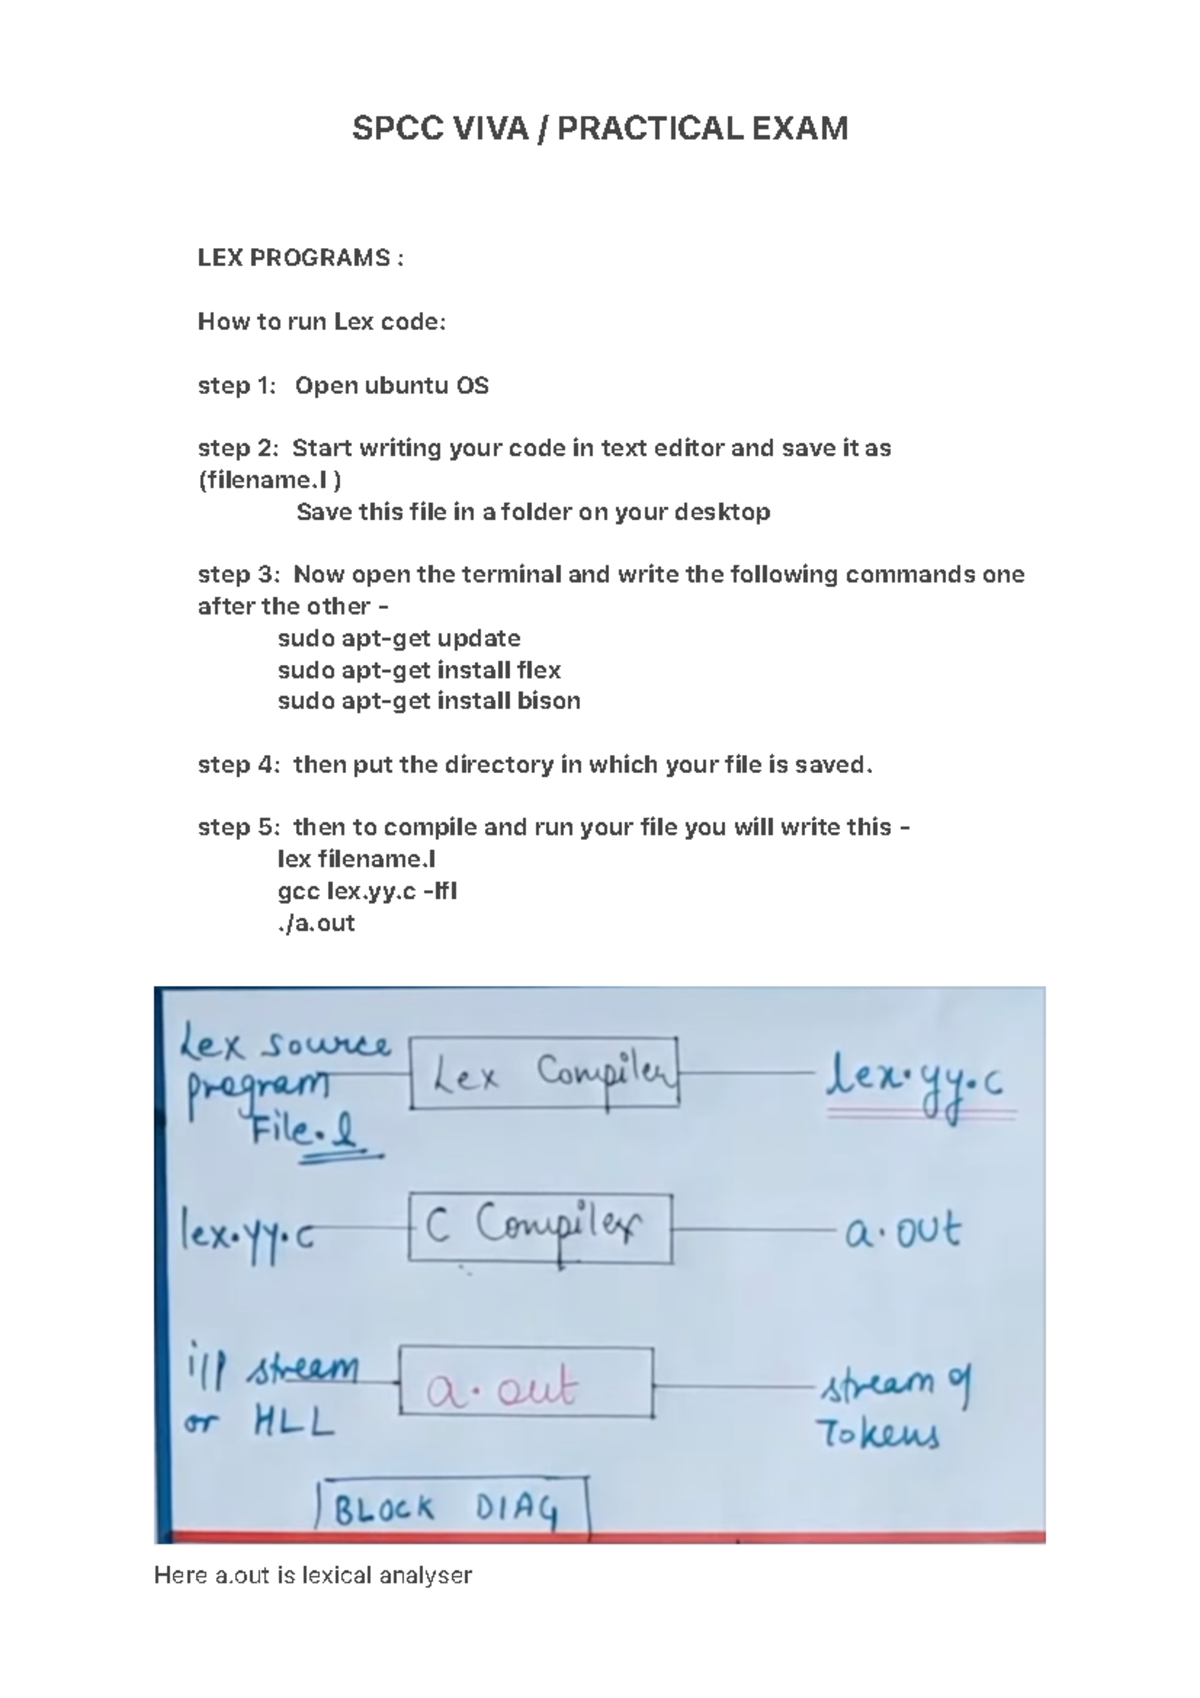 SPCC VIVA / PRACTICAL EXAM
LEX PROGRAMS :
How to run Lex code:
step 1: Open ubuntu OS
step 2: Start writing your code in text editor and save it as
(filename.l )
Save this file in a folder on your desktop
step 3: Now open the terminal and write the following commands one
after the other -
sudo apt-get update
sudo apt-get install flex
sudo apt-get install bison
step 4: then put the directory in which your file is saved.
step 5: then to compile and run your file you will write this -
lex filename.l
gcc lex.yy.c -lfl
./a.out
Lex source
program
File.l
Lex Compiler
lex.yy.c
lex.yy.c
C Compiler
a.out
i/p stream
or HLL
a.out
stream of
Tokens
BLOCK DIAG
Here a.out is lexical analyser